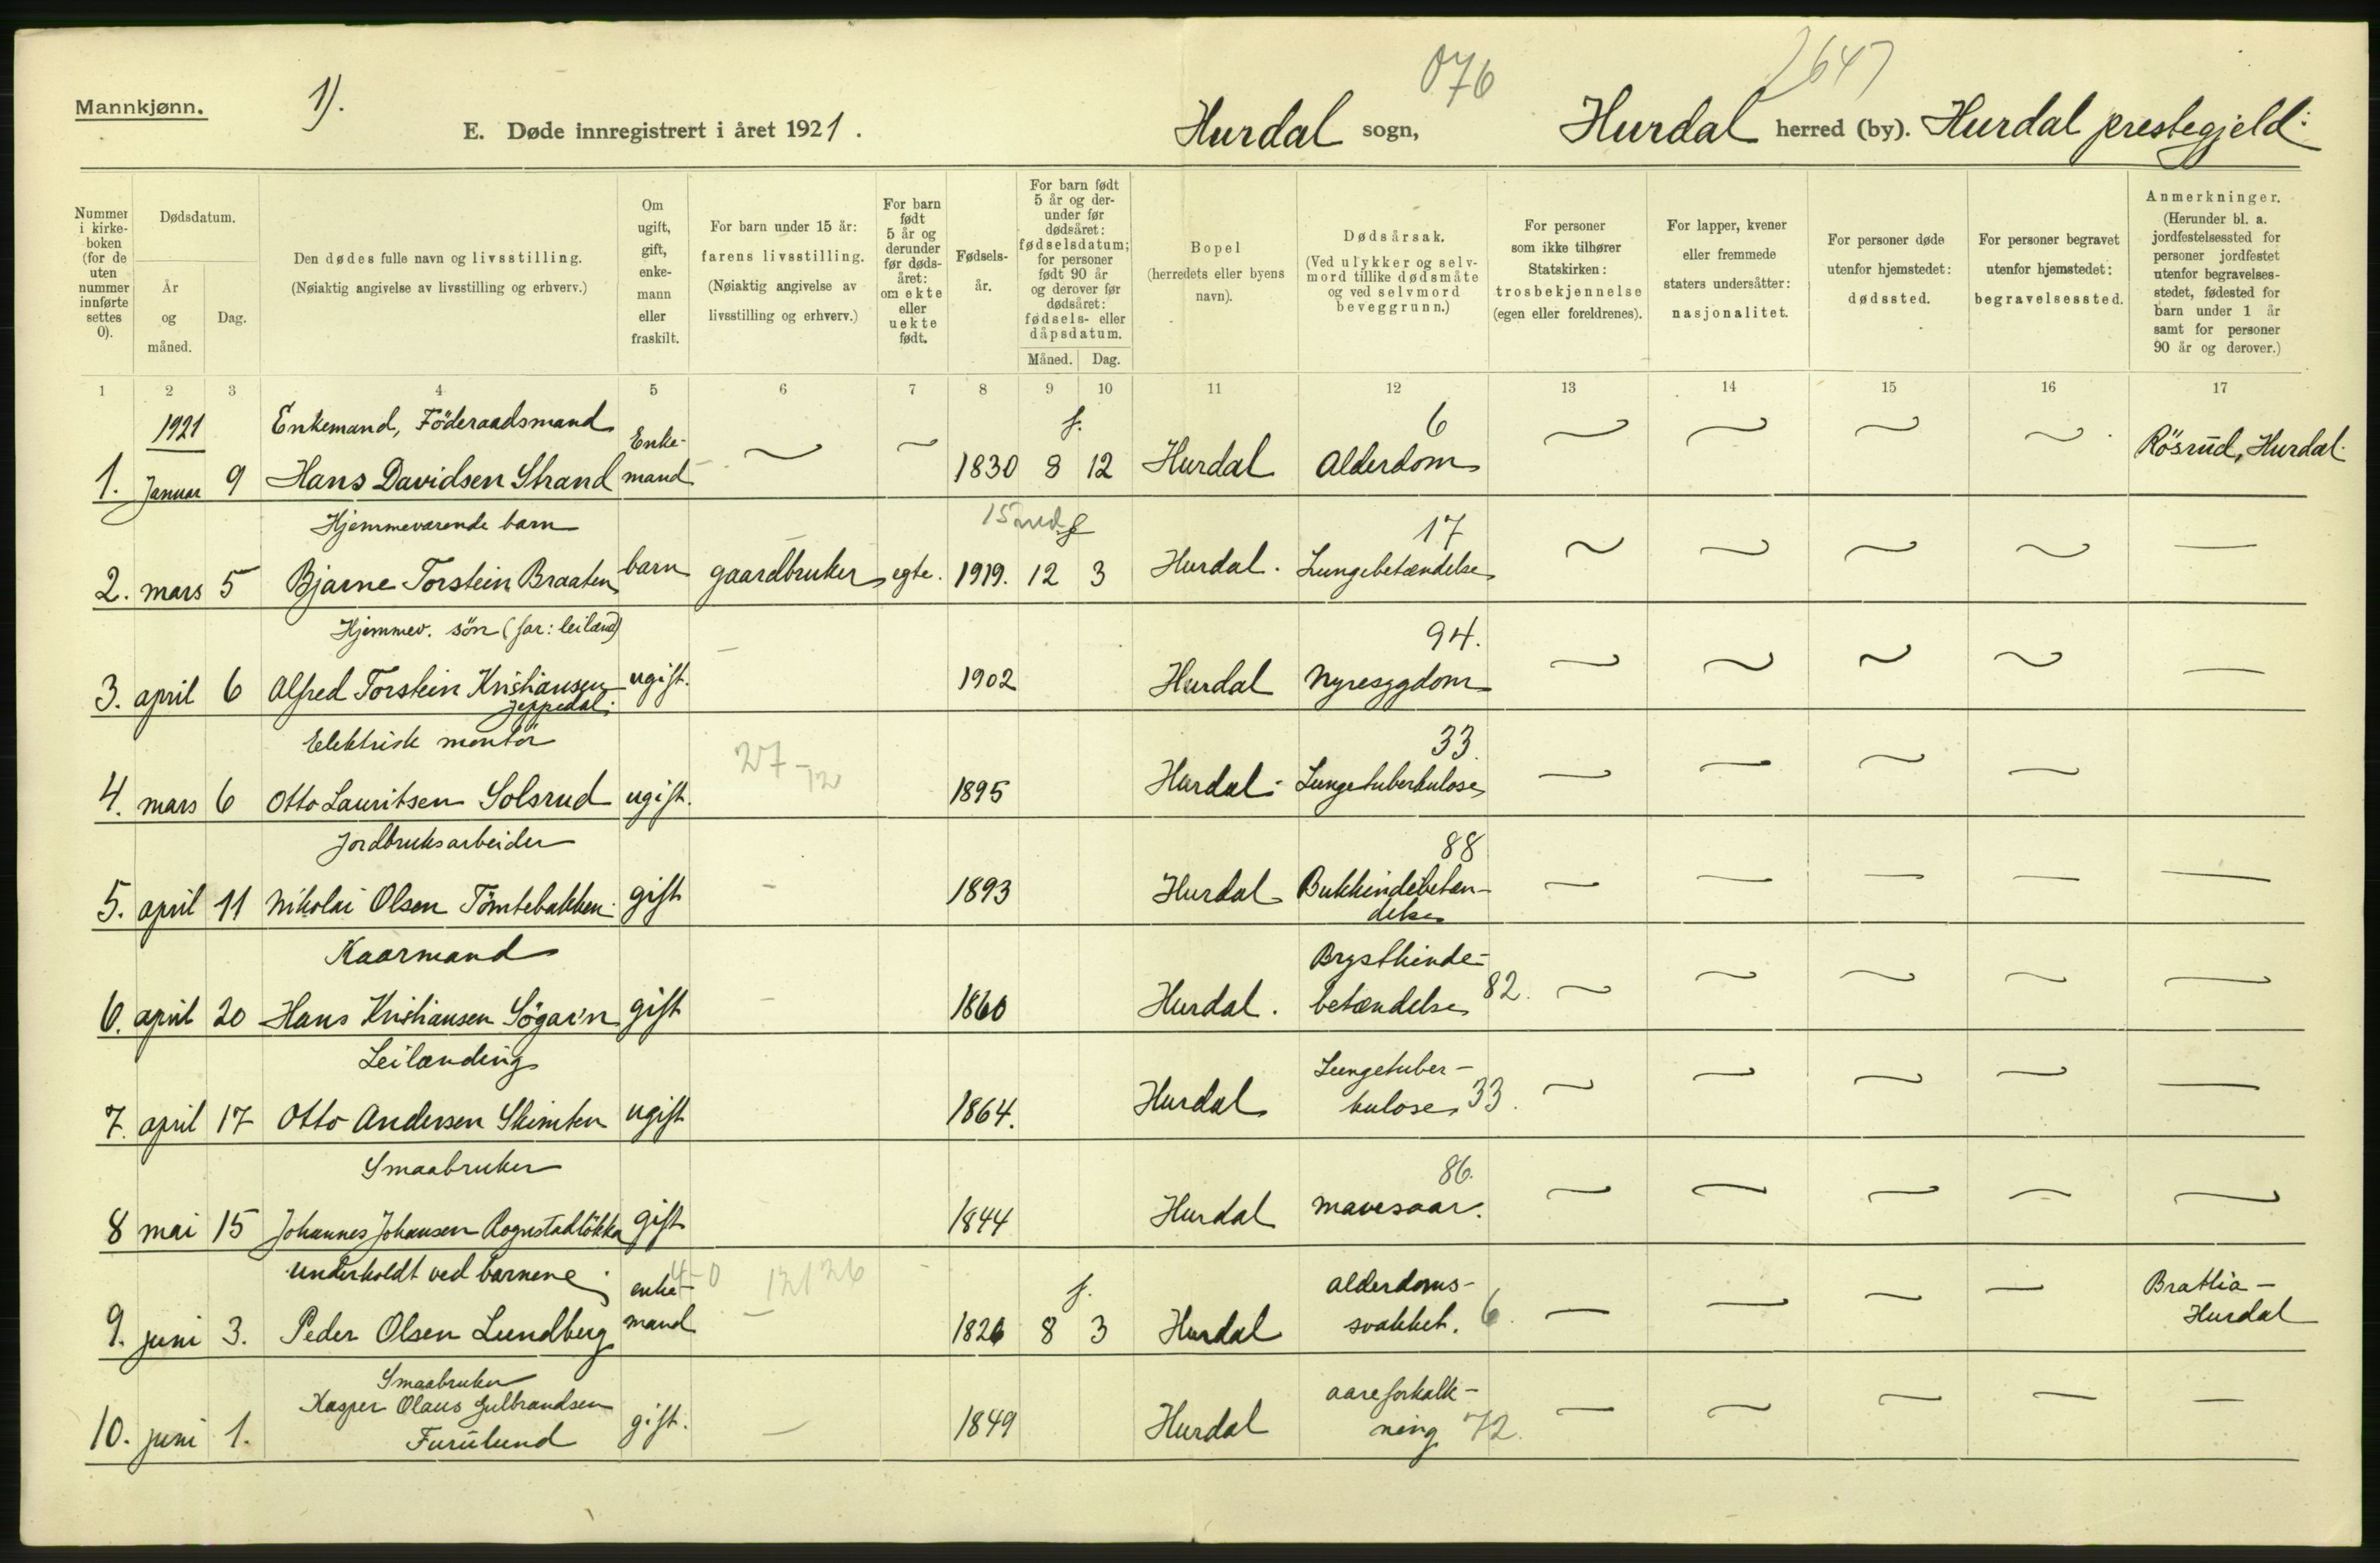 Mannkjønn.
1).
076
2647
E. Døde innregistrert i året 1921.
Hurdal sogn, Hurdal herred (by). Hurdal prestegjeld.
Nummer i kirkeboken (for de uten nummer innførte settes 0).
Dødsdatum.
År og måned.
Dag.
Den dødes fulle navn og livsstilling.
(Nøiaktig angivelse av livsstilling og erhverv.)
Om ugift, gift, enkemann eller fraskilt.
For barn under 15 år: farens livsstilling.
(Nøiaktig angivelse av livsstilling og erhverv.)
For barn født 5 år og derunder før dødsåret: om ekte eller uekte født.
Fødselsår.
For barn født 5 år og derunder før dødsåret: fødselsdatum; for personer født 90 år og derover før dødsåret: fødsels- eller dåpsdatum.
Måned. Dag.
Bopel (herredets eller byens navn).
Dødsårsak.
(Ved ulykker og selvmord tillike dødsmåte og ved selvmord beveggrunn.)
For personer som ikke tilhører Statskirken: trosbekjennelse (egen eller foreldrenes).
For lapper, kvener eller fremmede staters undersåtter: nasjonalitet.
For personer døde utenfor hjemstedet: dødssted.
For personer begravet utenfor hjemstedet: begravelsessted.
Anmerkninger.
(Herunder bl. a. jordfestelsessted for personer jordfestet utenfor begravelsesstedet, fødested for barn under 1 år samt for personer 90 år og derover.)
1 2 3 4 5 6 7 8 9 10 11 12 13 14 15 16 17
1921 Enkemand, Föderaadsmand f. 6
1. Januar 9 Hans Davidsen Strand Enkemand 1830 8 12 Hurdal Alderdom Rösrud, Hurdal.
Hjemmeværende barn 15 md f 17
2. mars 5 Bjarne Torstein Braaten barn gaardbruker egte. 1919. 12 3 Hurdal. Lungebetændelse
Hjemmev. sön (far: leilænd) 94.
3. april 6 Alfred Torstein Kristiansen Jeppedal. ugift. 1902 Hurdal Nyresygdom
Elektrisk montör 27-12 33.
4. mars 6 Otto Lauritsen Solsrud ugift. 1895 Hurdal Lungetuberkulose
Jordbruksarbeider 88
5. april 11 Nikolai Olsen Tömtebakken gift 1893 Hurdal Bukhindebetændelse
Kaarmand
6. april 20 Hans Kristiansen Sögar'n gift 1860 Hurdal. Brysthindebetændelse 82.
Leilænding
7. april 17 Otto Andersen Skimten ugift 1864. Hurdal Lungetuberkulose 33.
Smaabruker 86.
8 mai 15 Johannes Johansen Rognstadlökka gift 1844 Hurdal mavesaar.
Underholdt ved barnene 4-0 12126 f.
9. juni 3. Peder Olsen Lundberg enkemand 1826 8 3 Hurdal alderdomssvakket. 6. Bratlia - Hurdal
Smaabruker
10. juni 1. Kasper Olaus Gulbrandsen Furulund gift. 1849 Hurdal aareforkalkning 72.